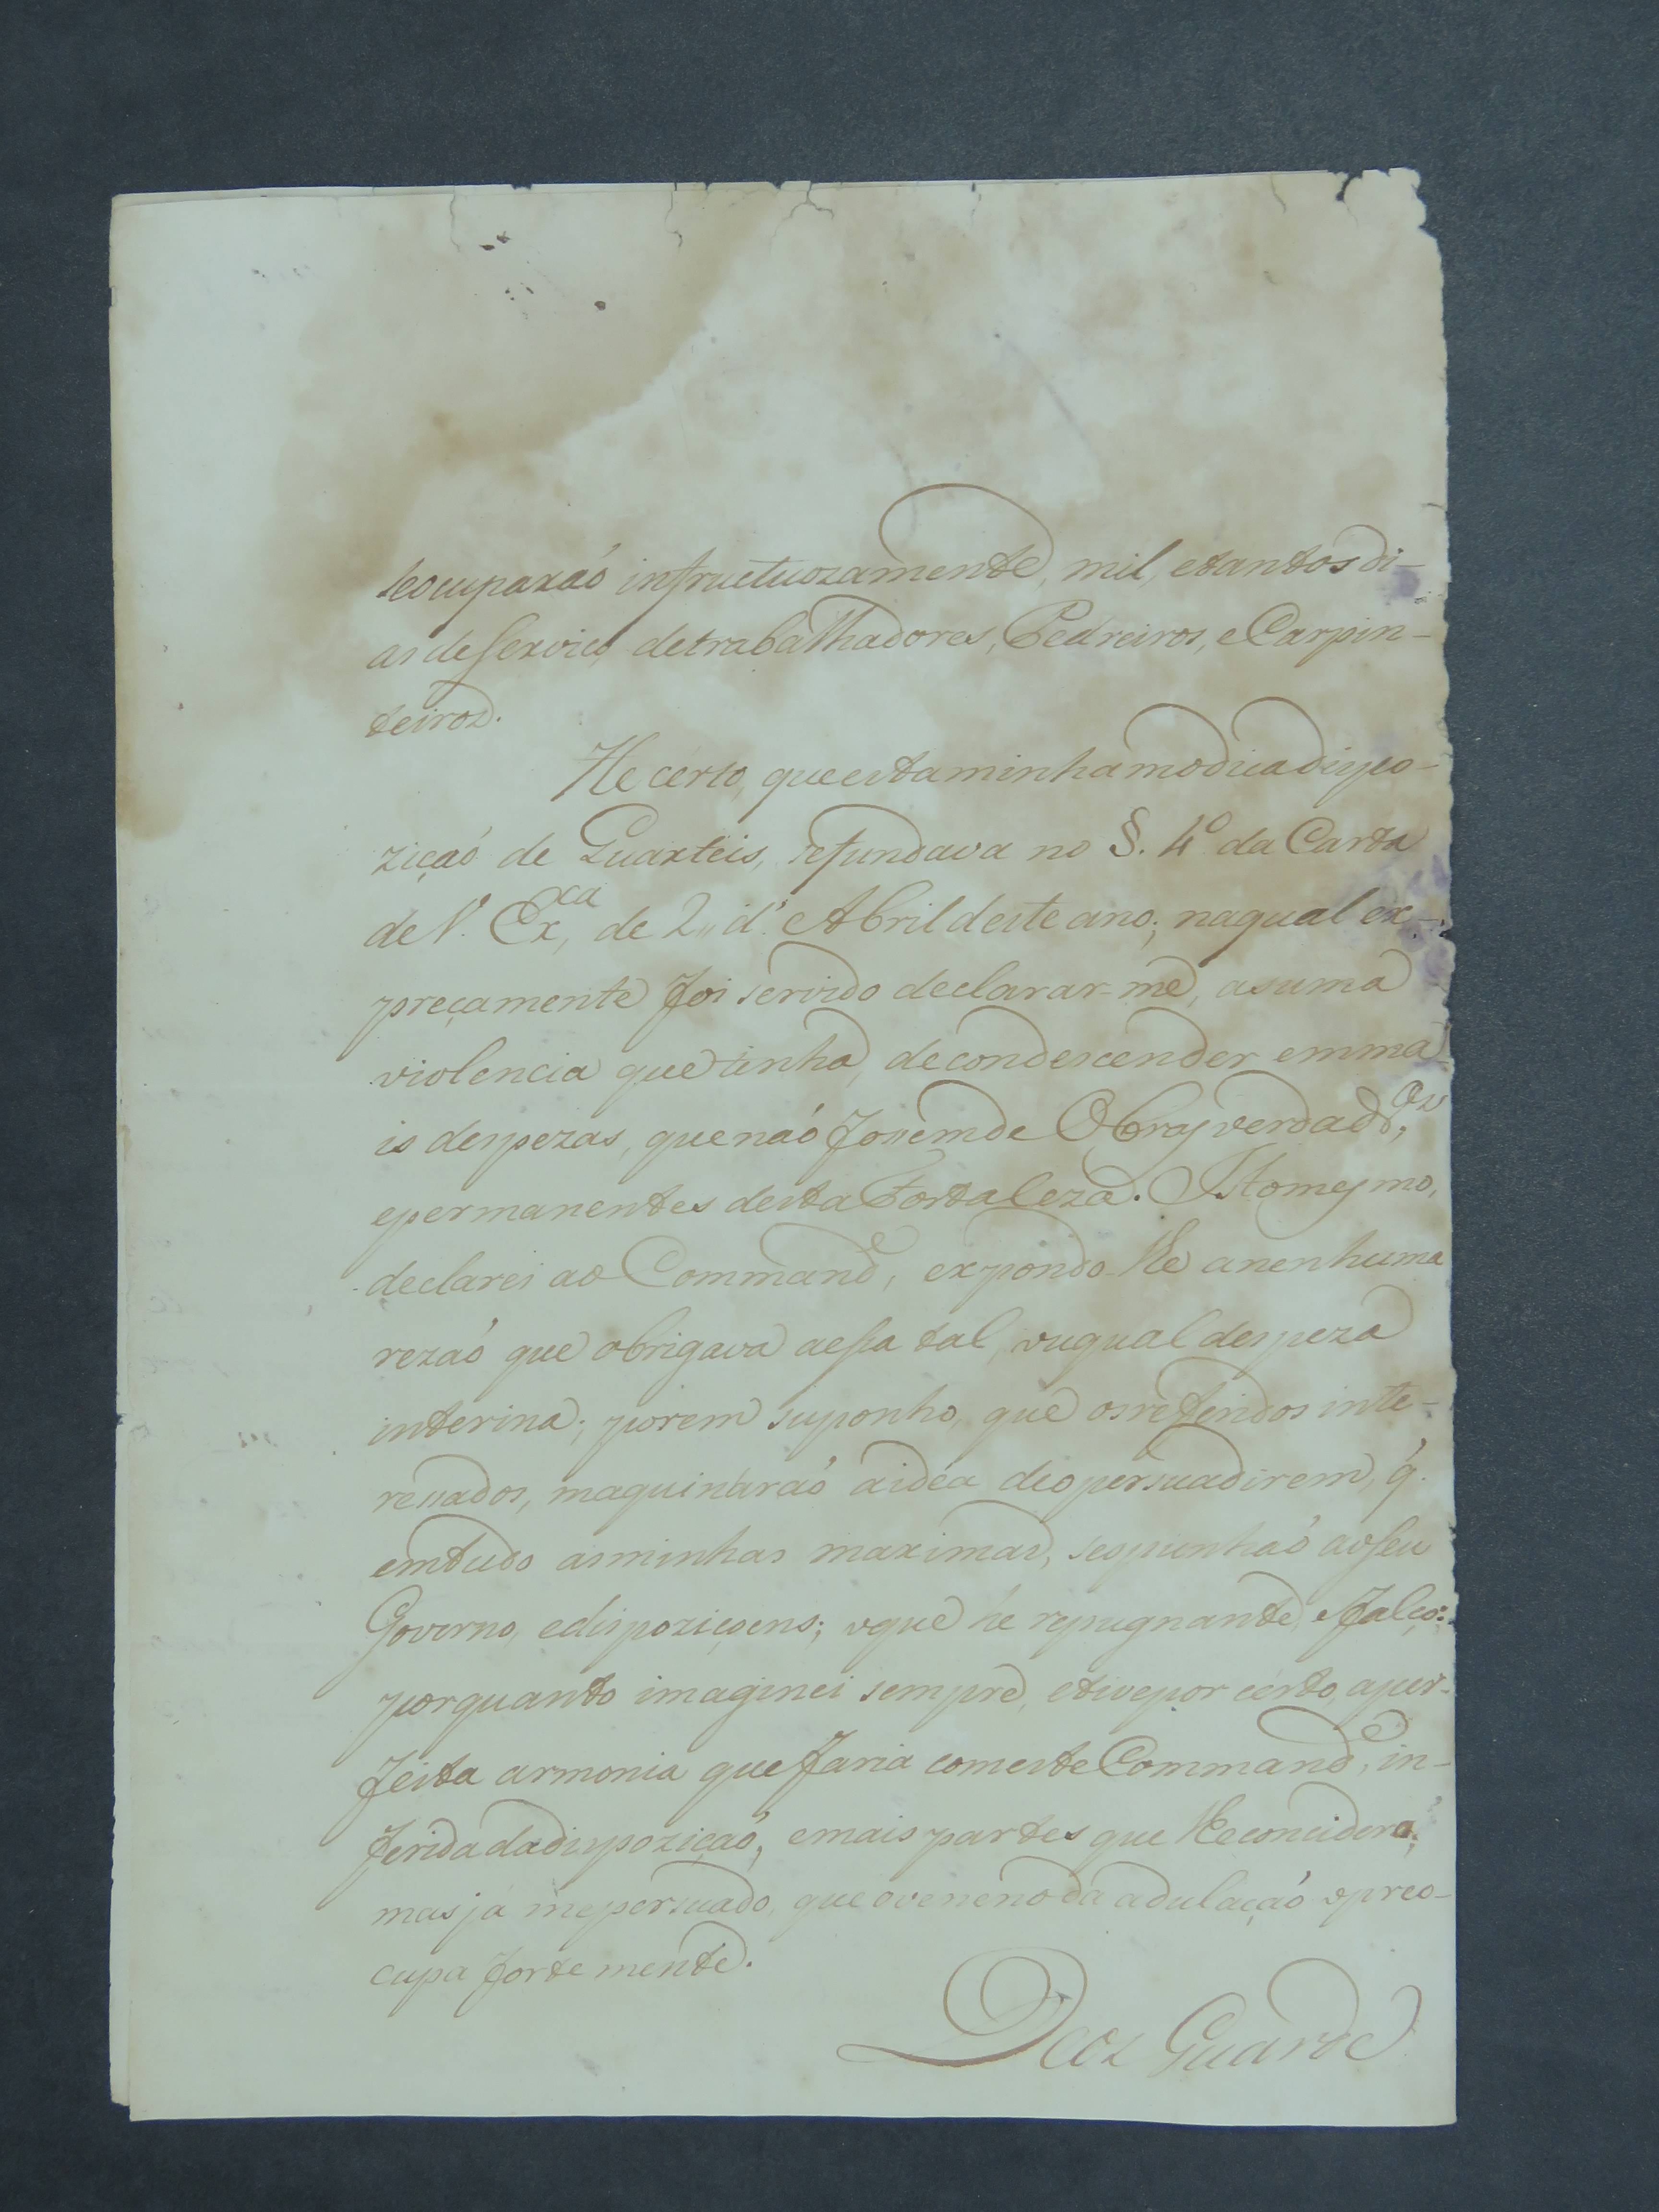 seocuparaó infructuozamente, mil, etantos di-
as deserviço, detrabalhadores, Pedreiros, e Carpin-
teiros.
He certo, que esta minha modica dispo-
ziçaó de Quarteis, sefundava no §. 4º da Carta
de V. Exca, de 2,, d'. Abril deste ano; naqual ex-
preçamente foi servido declarar-me, asuma
violencia que tinha, decondescender emma-
is despezas, que naó fossem de Obras verdadras,
epermanentes desta Fortaleza. Isto mesmo,
declarei ao Commande, expondo-lhe anenhuma
rezaó que obrigava aessa tal, ouqual despeza
interina; porem suponho, que osreferidos inte-
ressados, maquinaraó aidéa deopersuadirem, q.
emtudo asminhas maximas, seopunhaó aoseu
Governo, edispoziçoens; oque hé repugnante, efalço:
porquanto imaginei sempre, etivepor certo, aper-
feita armonia que faria comeste Commande, in-
ferida dadispoziçaó, emais partes que lhe concidera;
mas já mepersuado, que oveneno da adulaçaó opreo-
cupa fortemente.
Deos Guarde